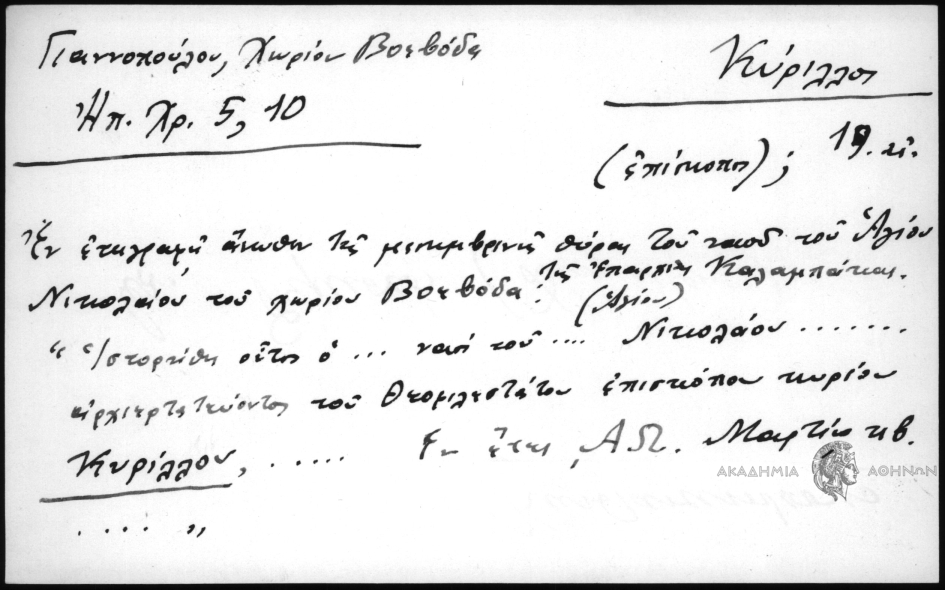 Γιαννοπούλου, Χωρίον Βοεβόδα
Ἠπ. Χρ. 5, 10
Κύριλλος
(ἐπίσκοπος); 19. αἰ.
Ἐν ἐπιγραφῇ ἄνωθεν τῆς μεσημβρινῆς θύρας τοῦ ναοῦ τοῦ Ἁγίου
Νικολάου τοῦ χωρίου Βοεβόδα: τῆς Ἐπαρχίας Καλαμπάκας.
"Ἱστορήθη οὗτος ὁ ... ναός τοῦ .... (Ἁγίου) Νικολάου .......
ἀρχιερατεύοντος τοῦ Θεοφιλεστάτου ἐπισκόπου κυρίου
Κυρίλλου, ...... Ἐν ἔτει ͵ΑΩ. Μαρτίου κβ.
.... "
ΑΚΑΔΗΜΙΑ ΑΘΗΝΩΝ